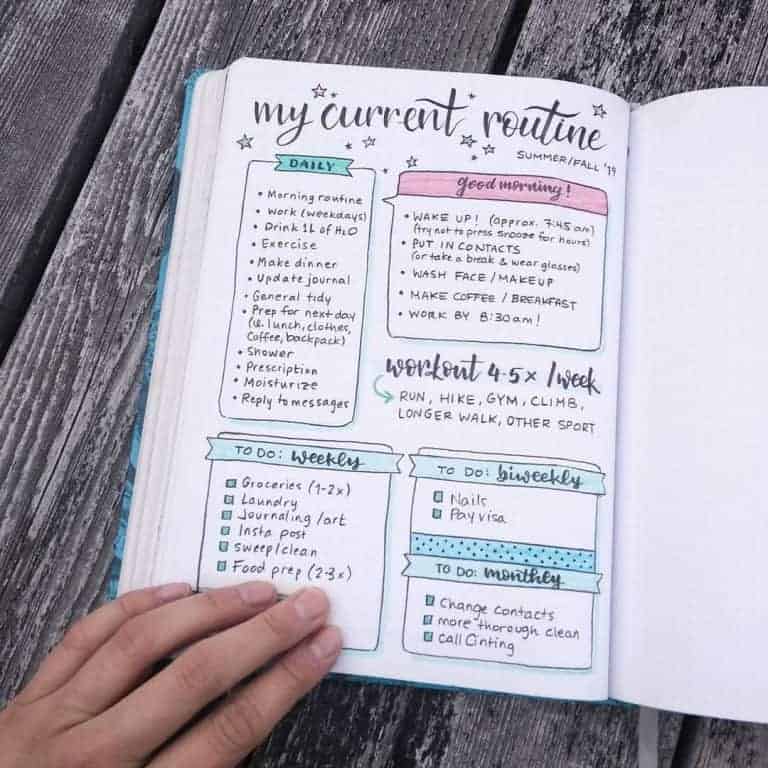 my current routine
SUMMER/FALL '19
DAILY
• Morning routine
• Work (weekdays)
• Drink 1L of H₂O
• Exercise
• Make dinner
• Update journal
• General tidy
• Prep for next day
(ie. lunch, clothes,
coffee, backpack)
• Shower
• Prescription
• Moisturize
• Reply to messages
good morning!
• WAKE UP! (approx. 7:45 am)
(try not to press snooze for hours)
• PUT IN CONTACTS
(or take a break & wear glasses)
• WASH FACE / MAKEUP
• MAKE COFFEE / BREAKFAST
• WORK BY 8:30am!
workout 4-5x /week
RUN, HIKE, GYM, CLIMB,
LONGER WALK, OTHER SPORT
TO DO: weekly
Groceries (1-2x)
Laundry
Journaling /art
Insta post
sweep/clean
Food prep (2-3x)
TO DO: biweekly
Nails
Pay visa
TO DO: monthly
Change contacts
more thorough clean
call Cinting